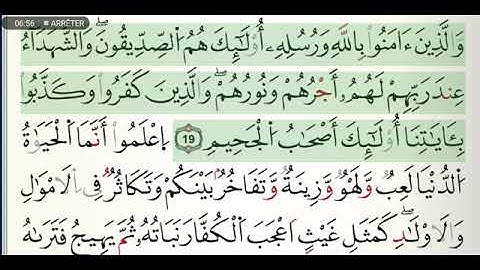 06:56 ARRÊTER
وَالَّذِينَ ءَامَنُوا بِاللَّهِ وَرُسُلِهِۦٓ أُوْلَٰٓئِكَ هُمُ اُلصِّدِّيقُونَۖ وَالشُّهَدَآءُ
عِندَ رَبِّهِمْ لَهُمُۥٓ أَجْرُهُمْ وَنُورُهُمْۖ وَالَّذِينَ كَفَرُوا وَكَذَّبُوا
بِـَٔايَٰتِنَآ أُوْلَٰٓئِكَ أَصْحَٰبُ اُلْجَحِيمِ 19 اِعْلَمُوٓا أَنَّمَا اَلْحَيَوٰةُ
اُلدُّنْيَا لَعِبٌ وَلَهْوٌ وَزِينَةٌ وَتَفَاخُرٌۢ بَيْنَكُمْ وَتَكَاثُرٌ فِى اِلَامْوَٰلِ
وَالَاوْلَٰدِۖ كَمَثَلِ غَيْثٍ اَعْجَبَ اَلْكُفَّارَ نَبَاتُهُۥ ثُمَّ يَهِيجُ فَتَر۪ىٰهُ